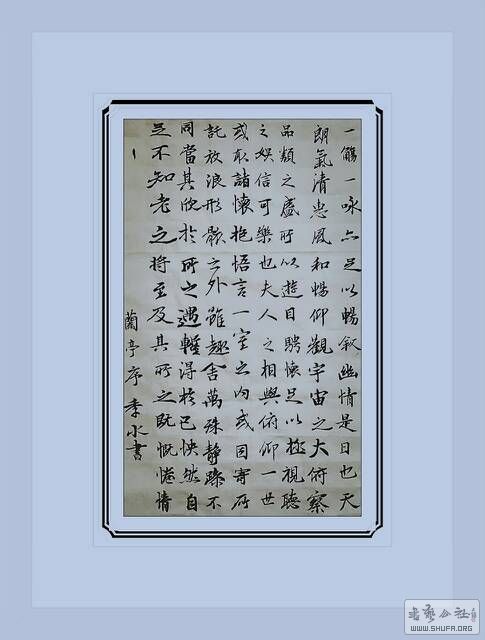 一觴一咏亦足以暢叙幽情是日也天
朗氣清惠風和暢仰觀宇宙之大俯察
品類之盛所以遊目騁懷足以極視聽
之娛信可樂也夫人之相與俯仰一世
或取諸懷抱悟言一室之內或因寄所
託放浪形骸之外雖趣舍萬殊靜躁不
同當其欣於所之遇蹔得於己怏然自
足不知老之將至及其所之既慨惓情
蘭亭序 季水書
书艺公社
WWW.SHUFA.ORG